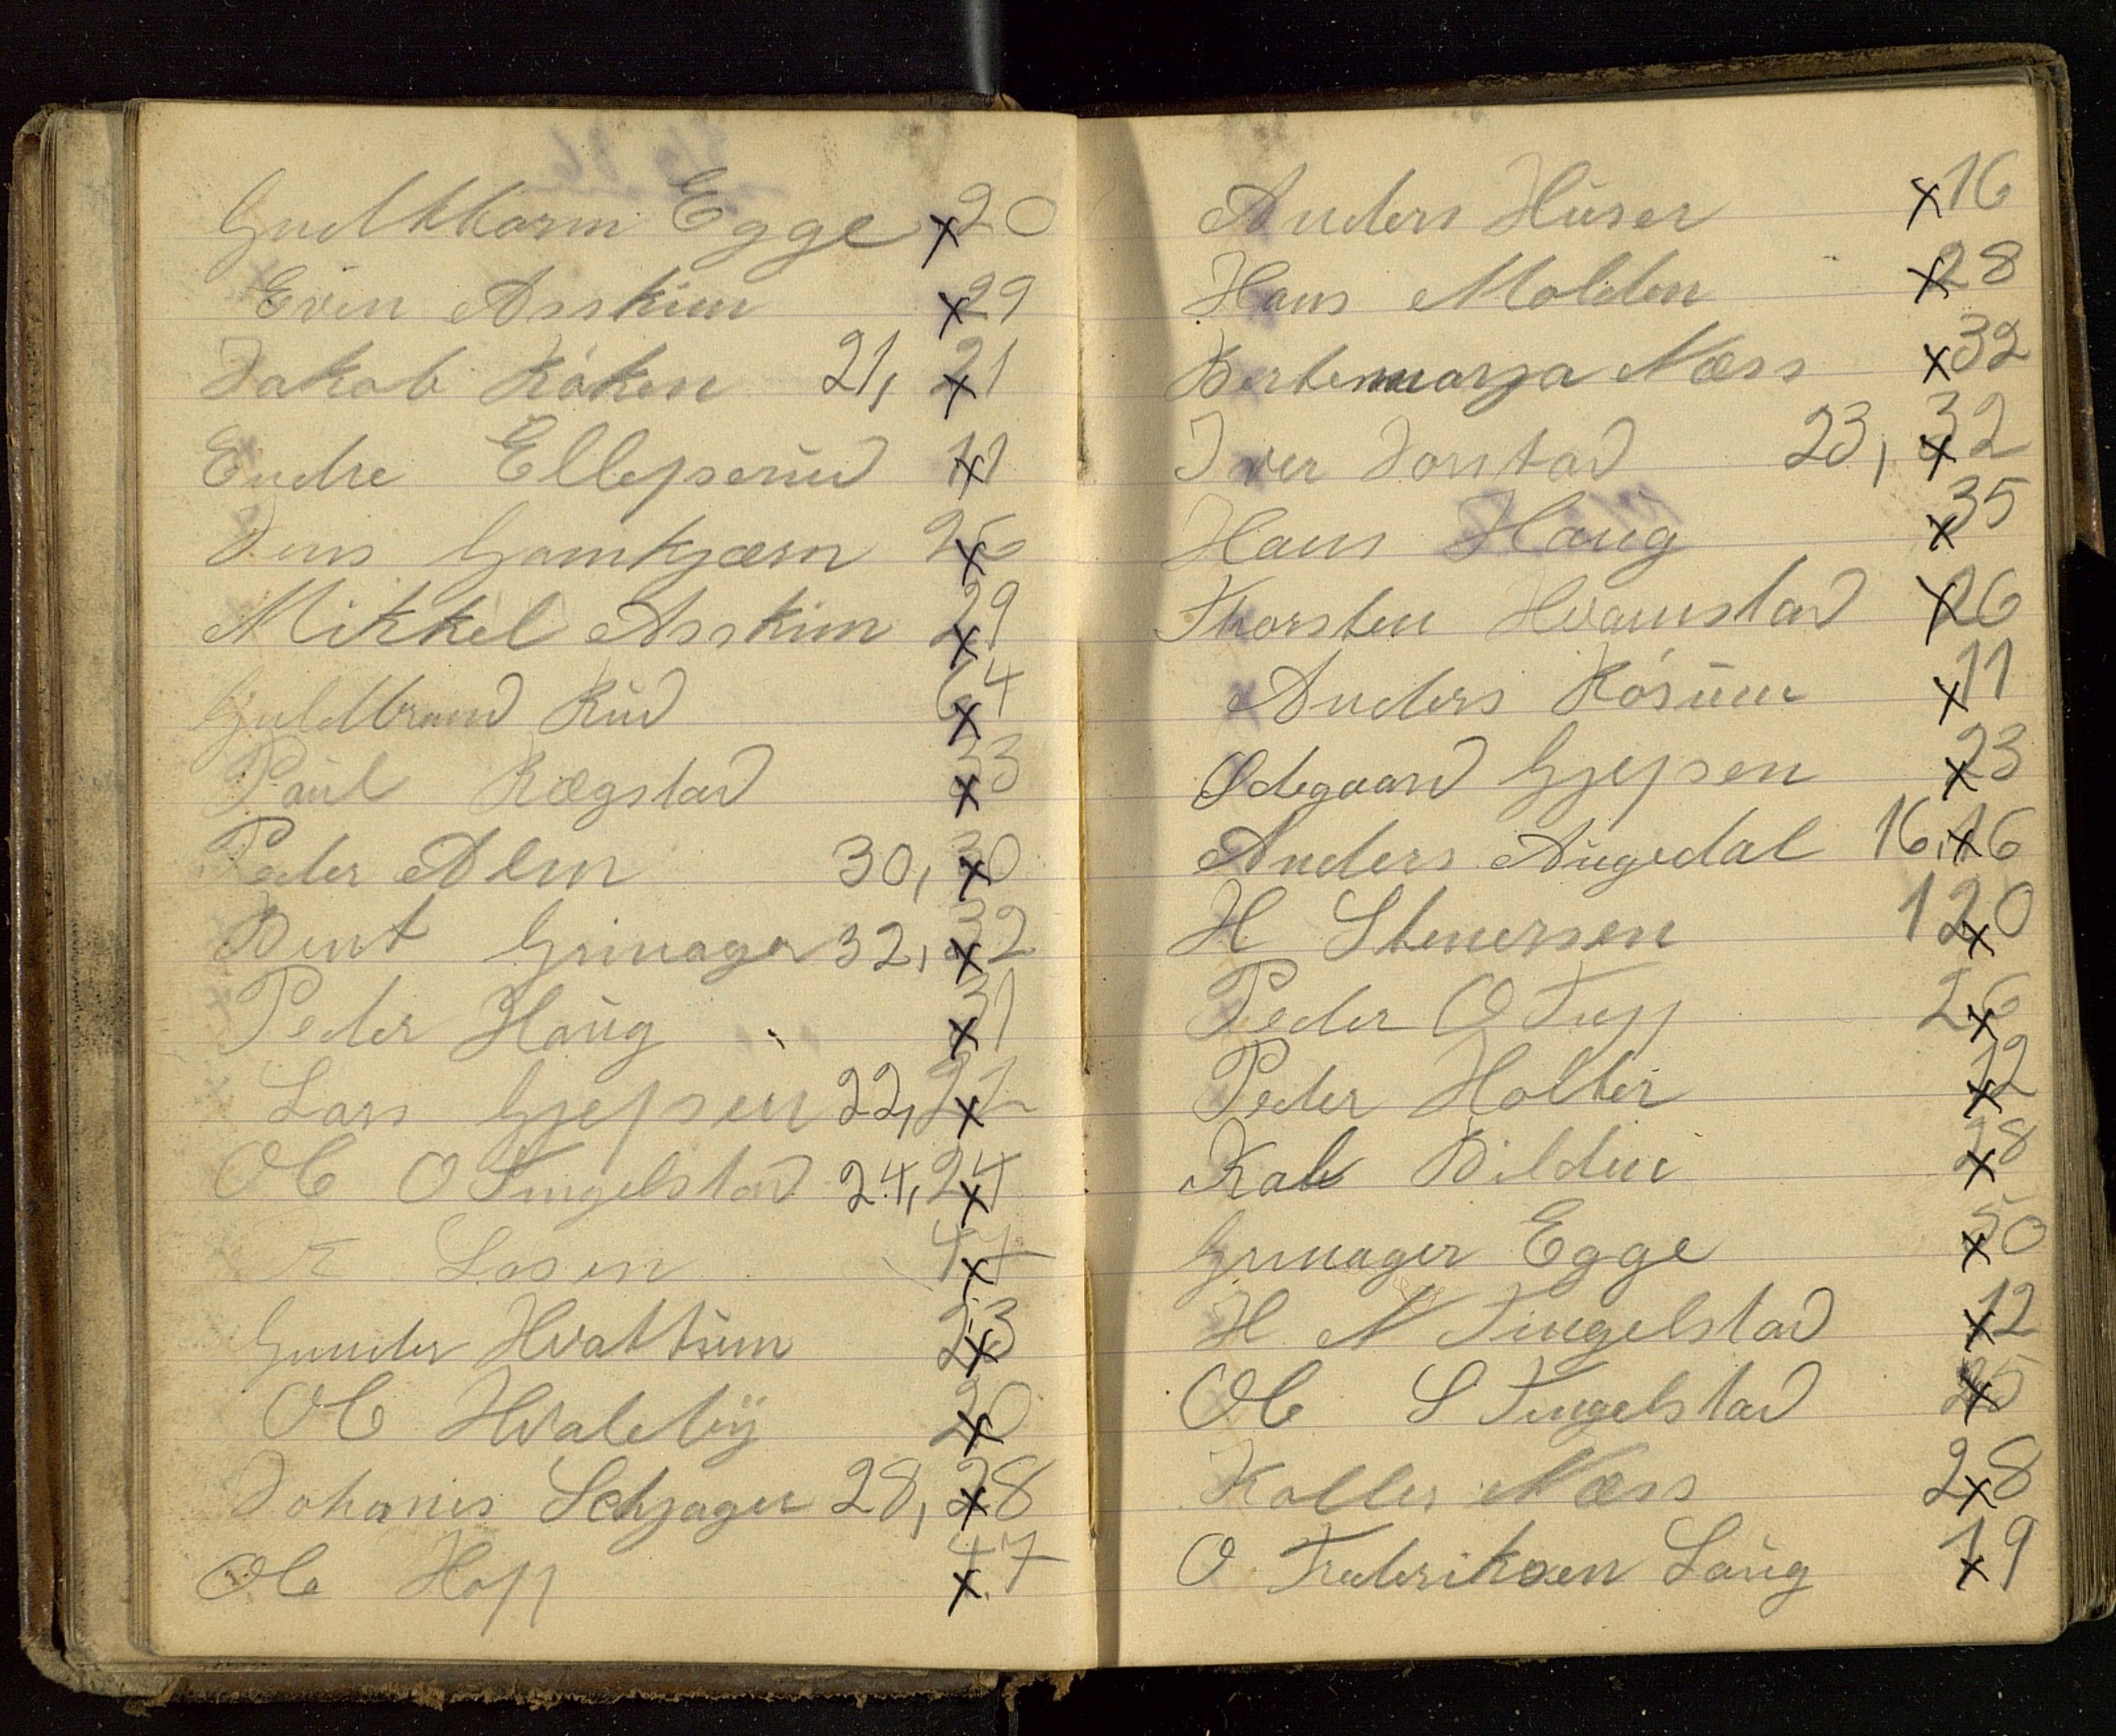 Gudthborm Egge x20
Even Asskim x29
Jakob Róken 21, x21
Endre Ellefserud x11
Jens Gamkjærn 26
Mikkel Asskim x29
Guldbrand Rud x64
Paul Rægstad x33
Peder Alm 30, x30
Bent Grinager 32, x32
Peder Haug x31
Lars Gjefsen 22, x22
Ole O Tingelstad 24, x24
Lasen x47
Gunder Hvattum 23
Ole Hvaleby x20
Johanes Schjager 28, x28
Ole Hoff x47
Anders Huser x16
Hans Molden x28
Bertemarja Næss x32
Iver Jorstad 23, x32
Hans Haug x35
Thorsten Hvamstad x26
Anders Rósum x11
Ødegaard Gjefsen x23
Anders Augedal 16, x16
H Stenersen 120
Peder O Tuff 26
Peder Holter x12
Kale Bilden x28
Grinager Egge x50
H N Tingelstad x12
Ole S Tingelstad x25
Kolles Næss 2x8
O. Frederiksen Laug 1x9